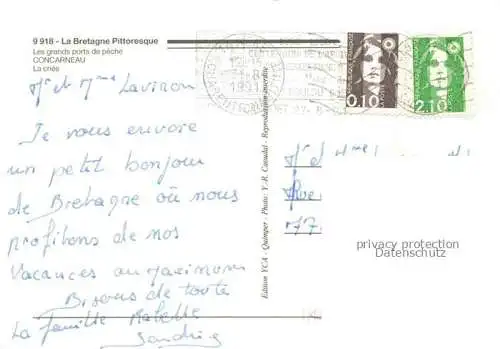 9 918 - La Bretagne Pittoresque
Les grands ports de pêche
CONCARNEAU
La criée
Mr et Mme Laviron
Je vous envoie
un petit bonjour
de Bretagne où nous
profitons de nos
Vacances au maximum
Bisous de toute
La famille
Sandrine
Edition YCA - Quimper - Photo: Y.-R. Caoudal - Reproduction interdite
0,10
2,10
Mr et Mme
Rue
77
privacy protection
Datenschutz